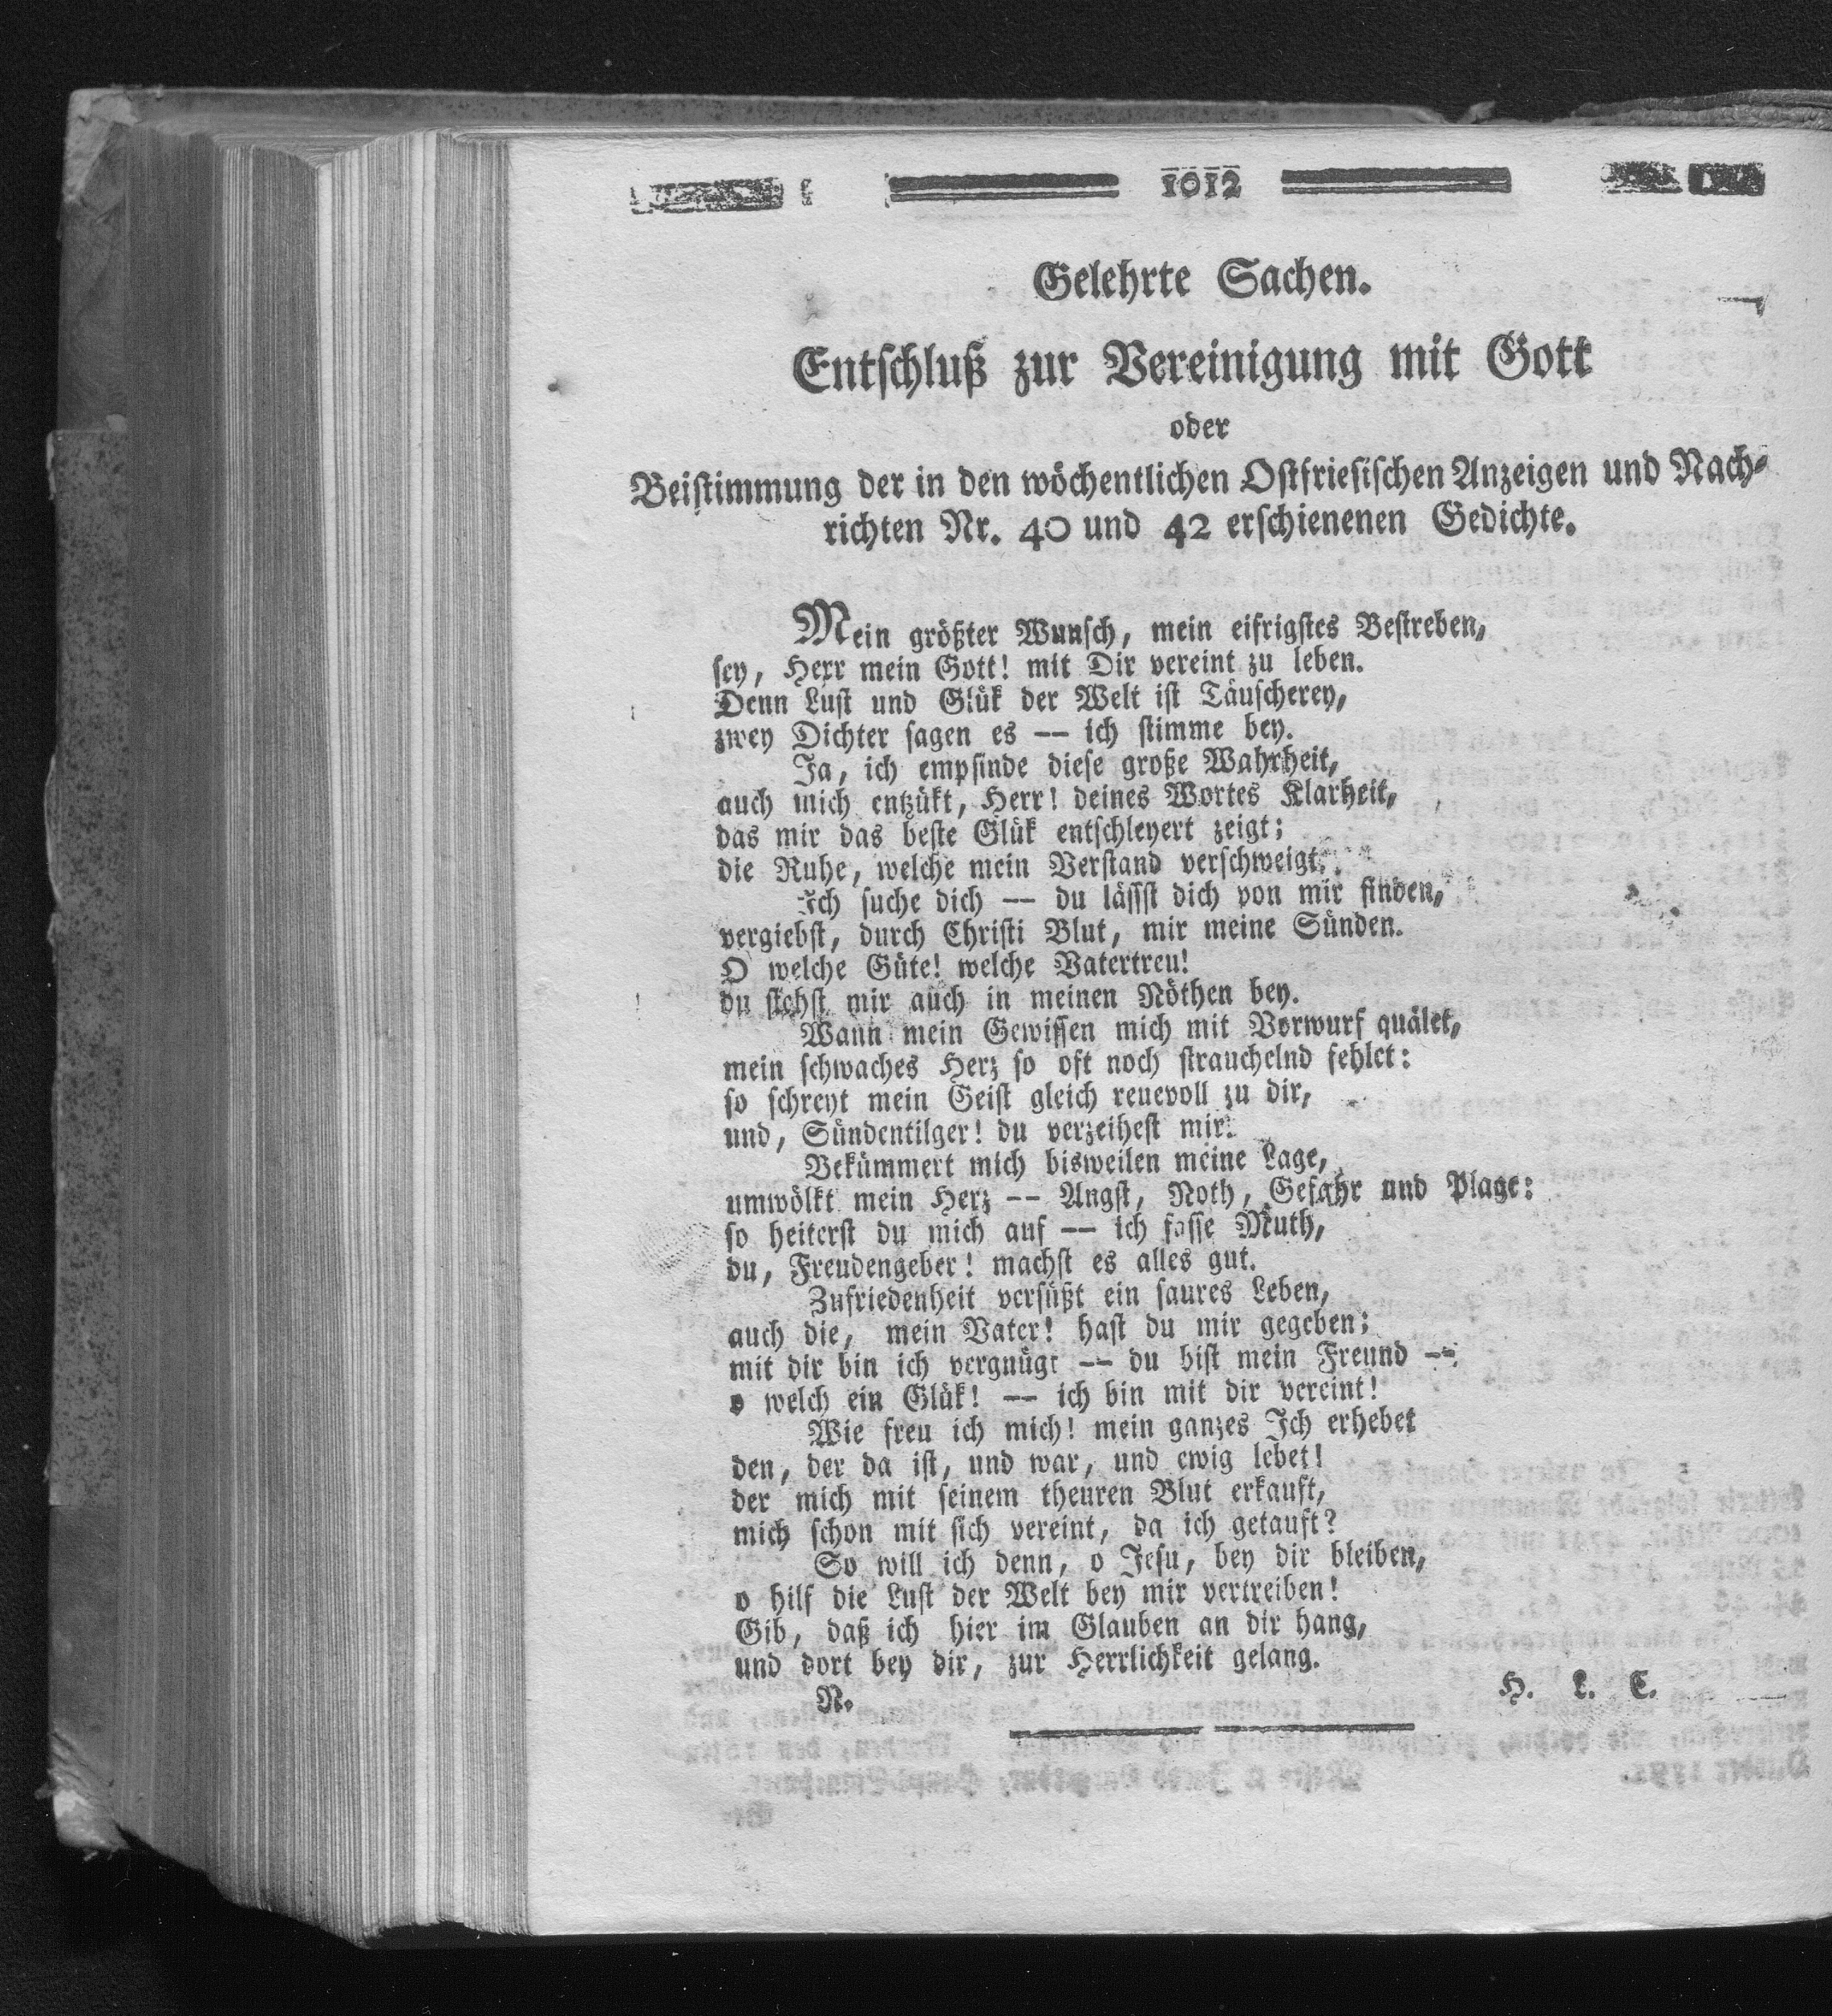 1012
Gelehrte Sachen.
Entschluß zur Vereinigung mit Gott
oder
Beistimmung der in den wöchentlichen Ostfriesischen Anzeigen und Nach-
richten Nr. 40 und 42 erschienenen Gedichte.
Mein größter Wunsch, mein eifrigstes Bestreben,
sey, Herr mein Gott! mit Dir vereint zu leben.
Denn Lust und Glük der Welt ist Täuscherey,
zwey Dichter sagen es -- ich stimme bey.
Ja, ich empfinde diese große Wahrheit,
auch mich entzükt, Herr! deines Wortes Klarheit,
das mir das beste Glük entschleyert zeigt;
die Ruhe, welche mein Verstand verschweigt.
Ich suche dich -- du lässst dich von mir finden,
vergiebst, durch Christi Blut, mir meine Sünden.
O welche Güte! welche Vatertreu!
du stehst mir auch in meinen Nöthen bey.
Wann mein Gewissen mich mit Vorwurf quälet,
mein schwaches Herz so oft noch strauchelnd fehlet:
so schreyt mein Geist gleich reuevoll zu dir,
und, Sündentilger! du verzeihest mir.
Bekümmert mich bisweilen meine Lage,
umwölkt mein Herz -- Angst, Noth, Gefahr und Plage:
so heiterst du mich auf -- ich fasse Muth,
du, Freudengeber! machst es alles gut.
Zufriedenheit versüßt ein saures Leben,
auch die, mein Vater! hast du mir gegeben;
mit dir bin ich vergnügt -- du bist mein Freund --
o welch ein Glük! -- ich bin mit dir vereint!
Wie freu ich mich! mein ganzes Ich erhebet
den, der da ist, und war, und ewig lebet!
der mich mit seinem theuren Blut erkauft,
mich schon mit sich vereint, da ich getauft?
So will ich denn, o Jesu, bey dir bleiben,
o hilf die Lust der Welt bey mir vertreiben!
Gib, daß ich hier im Glauben an dir hang,
und dort bey dir, zur Herrlichkeit gelang.
N.
H. L. C.